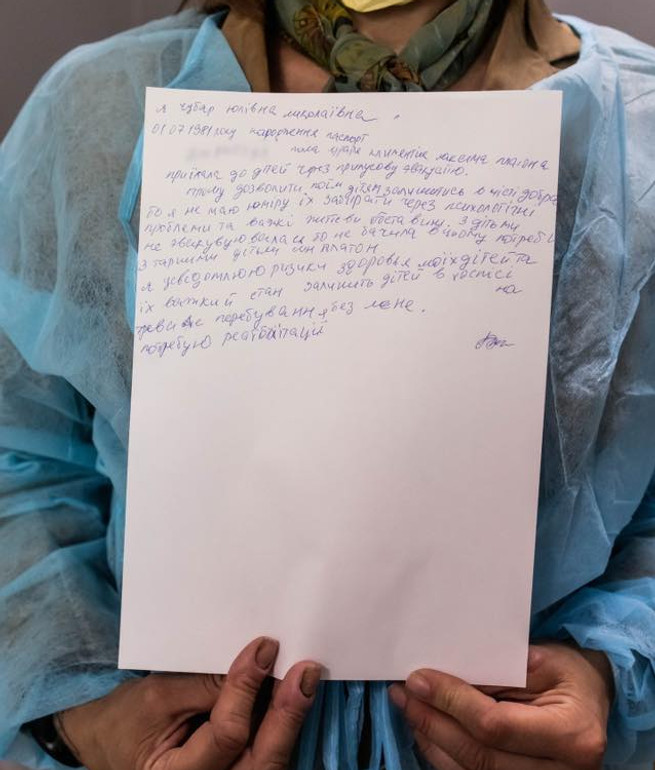 я Зубар Юлівна миколаївна.
01.07.1981 року народження паспорт
мама климентія максима платона
приїхала до дітей через примусову евакуацію.
прошу дозволити моїм дітям залишитись в місті добра
бо я не маю наміру їх забирати через психологічні
проблеми та важкі життєві обставини. з дітьми
не евакуювалася бо не бачила в цьому потреби
з таршими дітьми син платон
я усвідомлюю ризики здоровья моїх дітей та
їх важкий стан залишить дітей в хоспісі
на
тревале перебування без мене.
потребую реабілітації